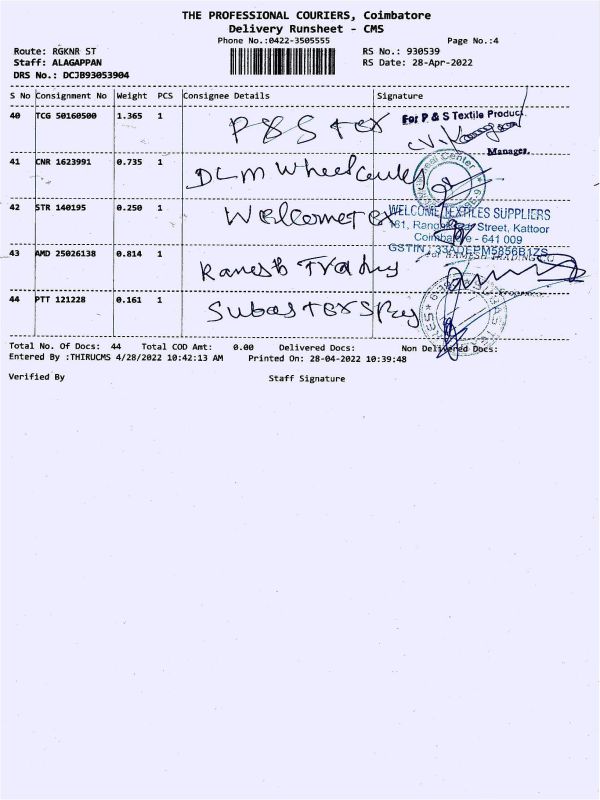 THE PROFESSIONAL COURIERS, Coimbatore
Delivery Runsheet - CMS
Phone No.:0422-3505555 Page No.:4
Route: RGKNR ST RS No.: 930539
Staff: ALAGAPPAN RS Date: 28-Apr-2022
DRS No.: DCJB93053904
S No Consignment No Weight PCS Consignee Details Signature
40 TCG 50160500 1.365 1 P&S tex For P & S Textile Product
Manager.
41 CNR 1623991 0.735 1 DLM Wheel Center
42 STR 140195 0.250 1 Wellcome tex WELCOME TEXTILES SUPPLIERS
Street, Kattoor
Coimbatore - 641 009
GSTIN : 33ADEPM5856B1ZS
43 AMD 25026138 0.814 1 Ramesh Trading For RAMESH TRADING CO
44 PTT 121228 0.161 1 Subas tex
Total No. Of Docs: 44 Total COD Amt: 0.00 Delivered Docs: Non Delivered Docs:
Entered By :THIRUCMS 4/28/2022 10:42:13 AM Printed On: 28-04-2022 10:39:48
Verified By Staff Signature